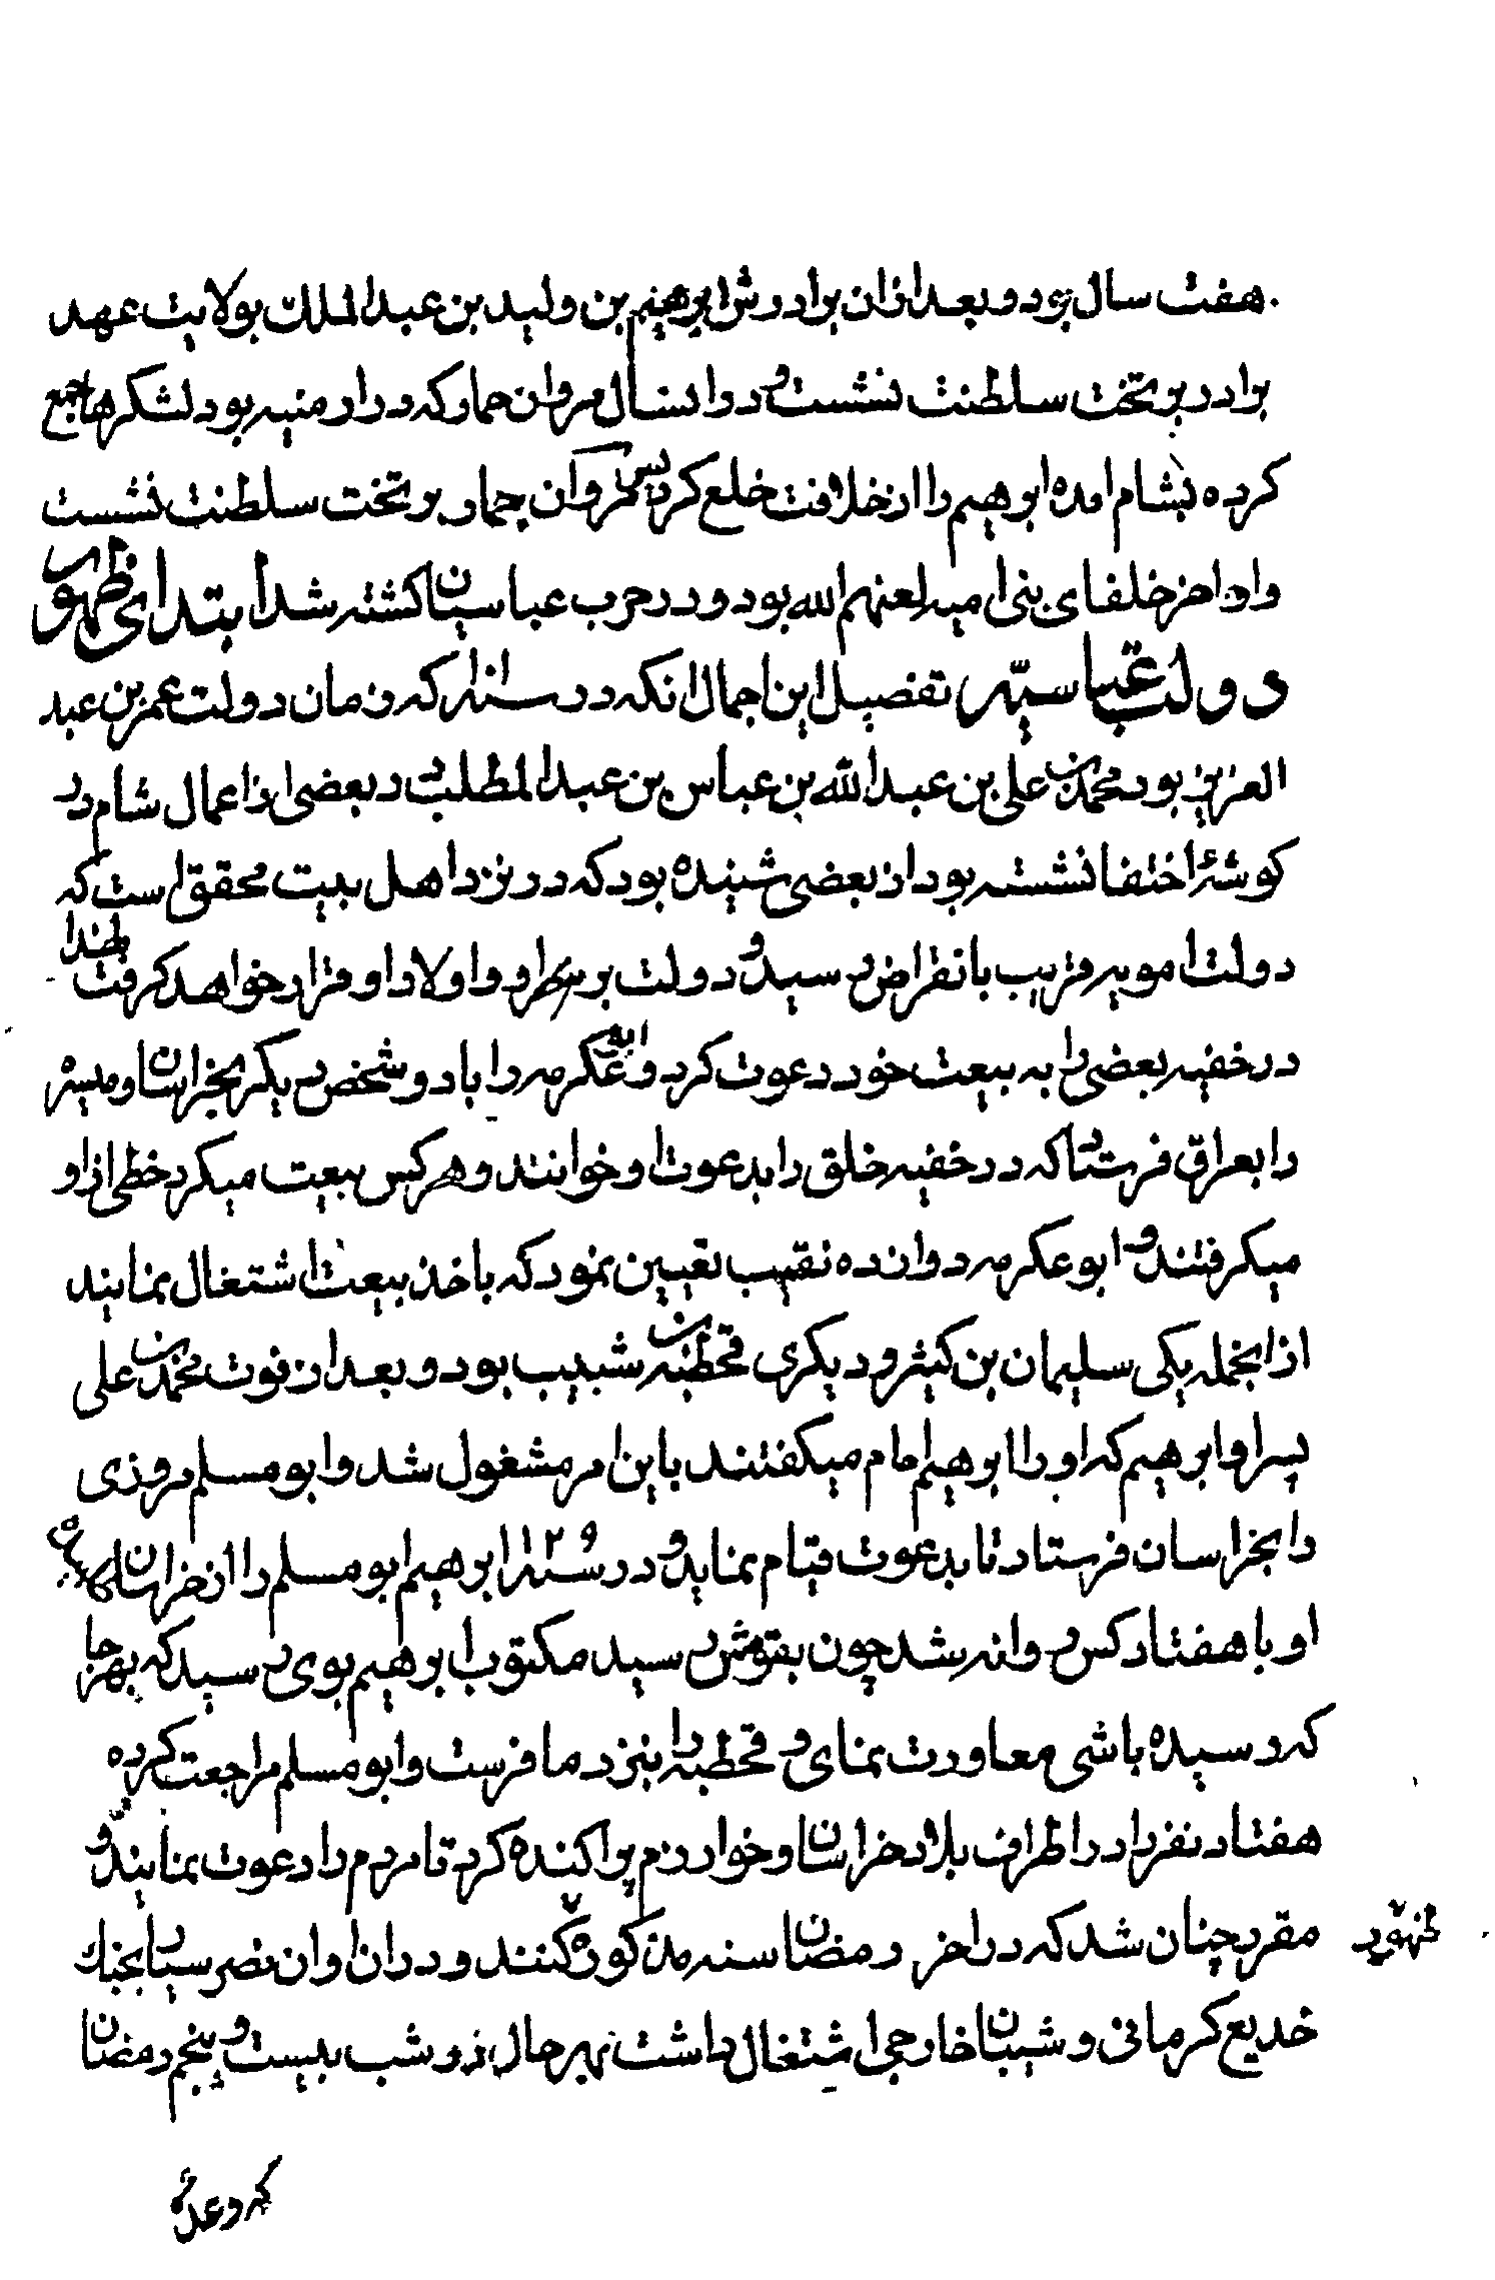 هفت سال بود و بعد ازان برادرش ابرهیم بن ولید بن عبد الملک بولایت عهد
برادر بر تخت سلطنت نشست و در انسال مروان حمار که در ارمنیه بود لشکرها جمع
کرده بشام امده ابرهیم را از خلافت خلع کرد پس مروان حمار بر تخت سلطنت نشست
و او اخر خلفای بنی امیه لعنهم الله بود و در حرب عباسیان کشته شد ابتدای ظهور
دولت عباسیه تفصیل این اجمال انکه در سنه که زمان دولت عمر بن عبد
العزیز بود محمد بن علی بن عبد الله بن عباس بن عبد المطلب در بعضی از اعمال شام در
کوشهٔ اختفا نشسته بود از بعضی شینده بود که در نزد اهل بیت محقق است که
دولت امویه قریب بانقراض رسید و دولت بر او و اولاد او قرار خواهد کرفت لهذا
در خفیه بعضی را به بیعت خود دعوت کرد و ابو عکرمه را با دو شخص دیکر بخراسان و میسره
را بعراق فرستاد که در خفیه خلق را بدعوت او خوانند و هر کس بیعت میکرد خطی از او
میکرفتند و ابو عکرمه دوازده نقیب تعیین نمود که باخذ بیعت اشتغال نمایند
از انجمله یکی سلیمان بن کثیر و دیکری قحطبه بن شبیب بود و بعد از فوت محمد بن علی
پسر او ابرهیم که او را ابرهیم امام میکفتند باین امر مشغول شد و ابو مسلم مروزی
را بخراسان فرستاد تا بدعوت قیام نماید و در سنه ۱۲۹ ابرهیم ابو مسلم را از خراسان
او با هفتاد کس روانه شد چون بقومش رسید مکتوب ابرهیم بوی رسید که بهر جا
که رسیده باشی معاودت نمای و قحطبه را بنزد ما فرست و ابو مسلم مراجعت کرده
هفتاد نفر را در اطراف بلاد خراسان و خوارزم پراکنده کرد تا مردم را دعوت نمایند و
مقرر چنان شد که در اخر رمضان سنه مذکوره کنند و دران اوان نصر سیار بجنک
ظهور
خدیع کرمانی و شیبان خارجی اشتغال داشت بهر حال در شب بیست و پنجم رمضان
که وعدهٔ